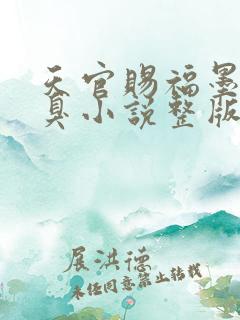 天官賜福墨
小説整版
展洪德
未经同意禁止转载